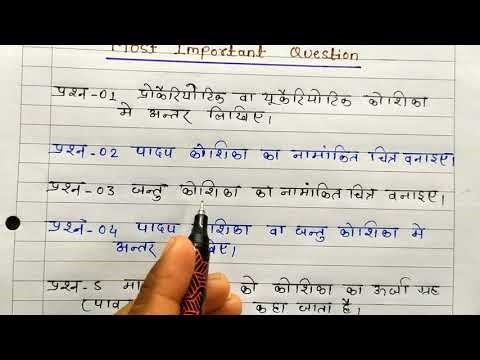 Most Important Question
प्रश्न-01 प्रोकैरियोटिक वा यूकैरियोटिक कोशिका
मे अन्तर लिखिए।
प्रश्न-02 पादप कोशिका का नामांकित चित्र बनाइए।
प्रश्न-03 जन्तु कोशिका का नामांकित चित्र बनाइए।
प्रश्न-04 पादप कोशिका वा जन्तु कोशिका मे
अन्तर
प्रश्न-5 को कोशिका का ऊर्जा ग्रह
कहा जाता है।